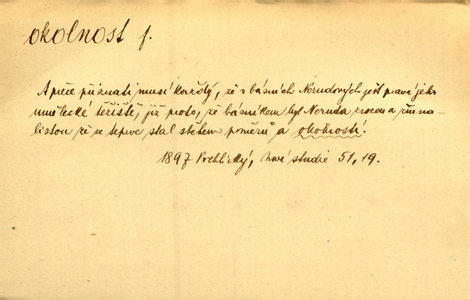 okolnost f.
A přece přiznati musí každý, že v básních Nerudových jest právě jeho
umělecké těžiště, již proto, že básníkem byl Neruda rozen a žurna-
listou že se teprve stal sběhem poměrů a okolností.
1897 Vrchlický, Nové studie 51, 19.